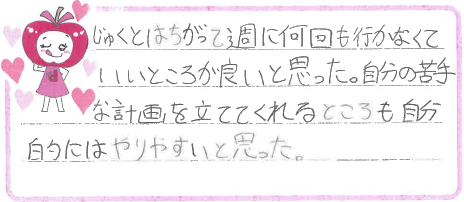 じゅくとはちがって週に何回も行かなくて
いいところが良いと思った。自分の苦手
な計画を立ててくれるところも自分
的にはやりやすいと思った。